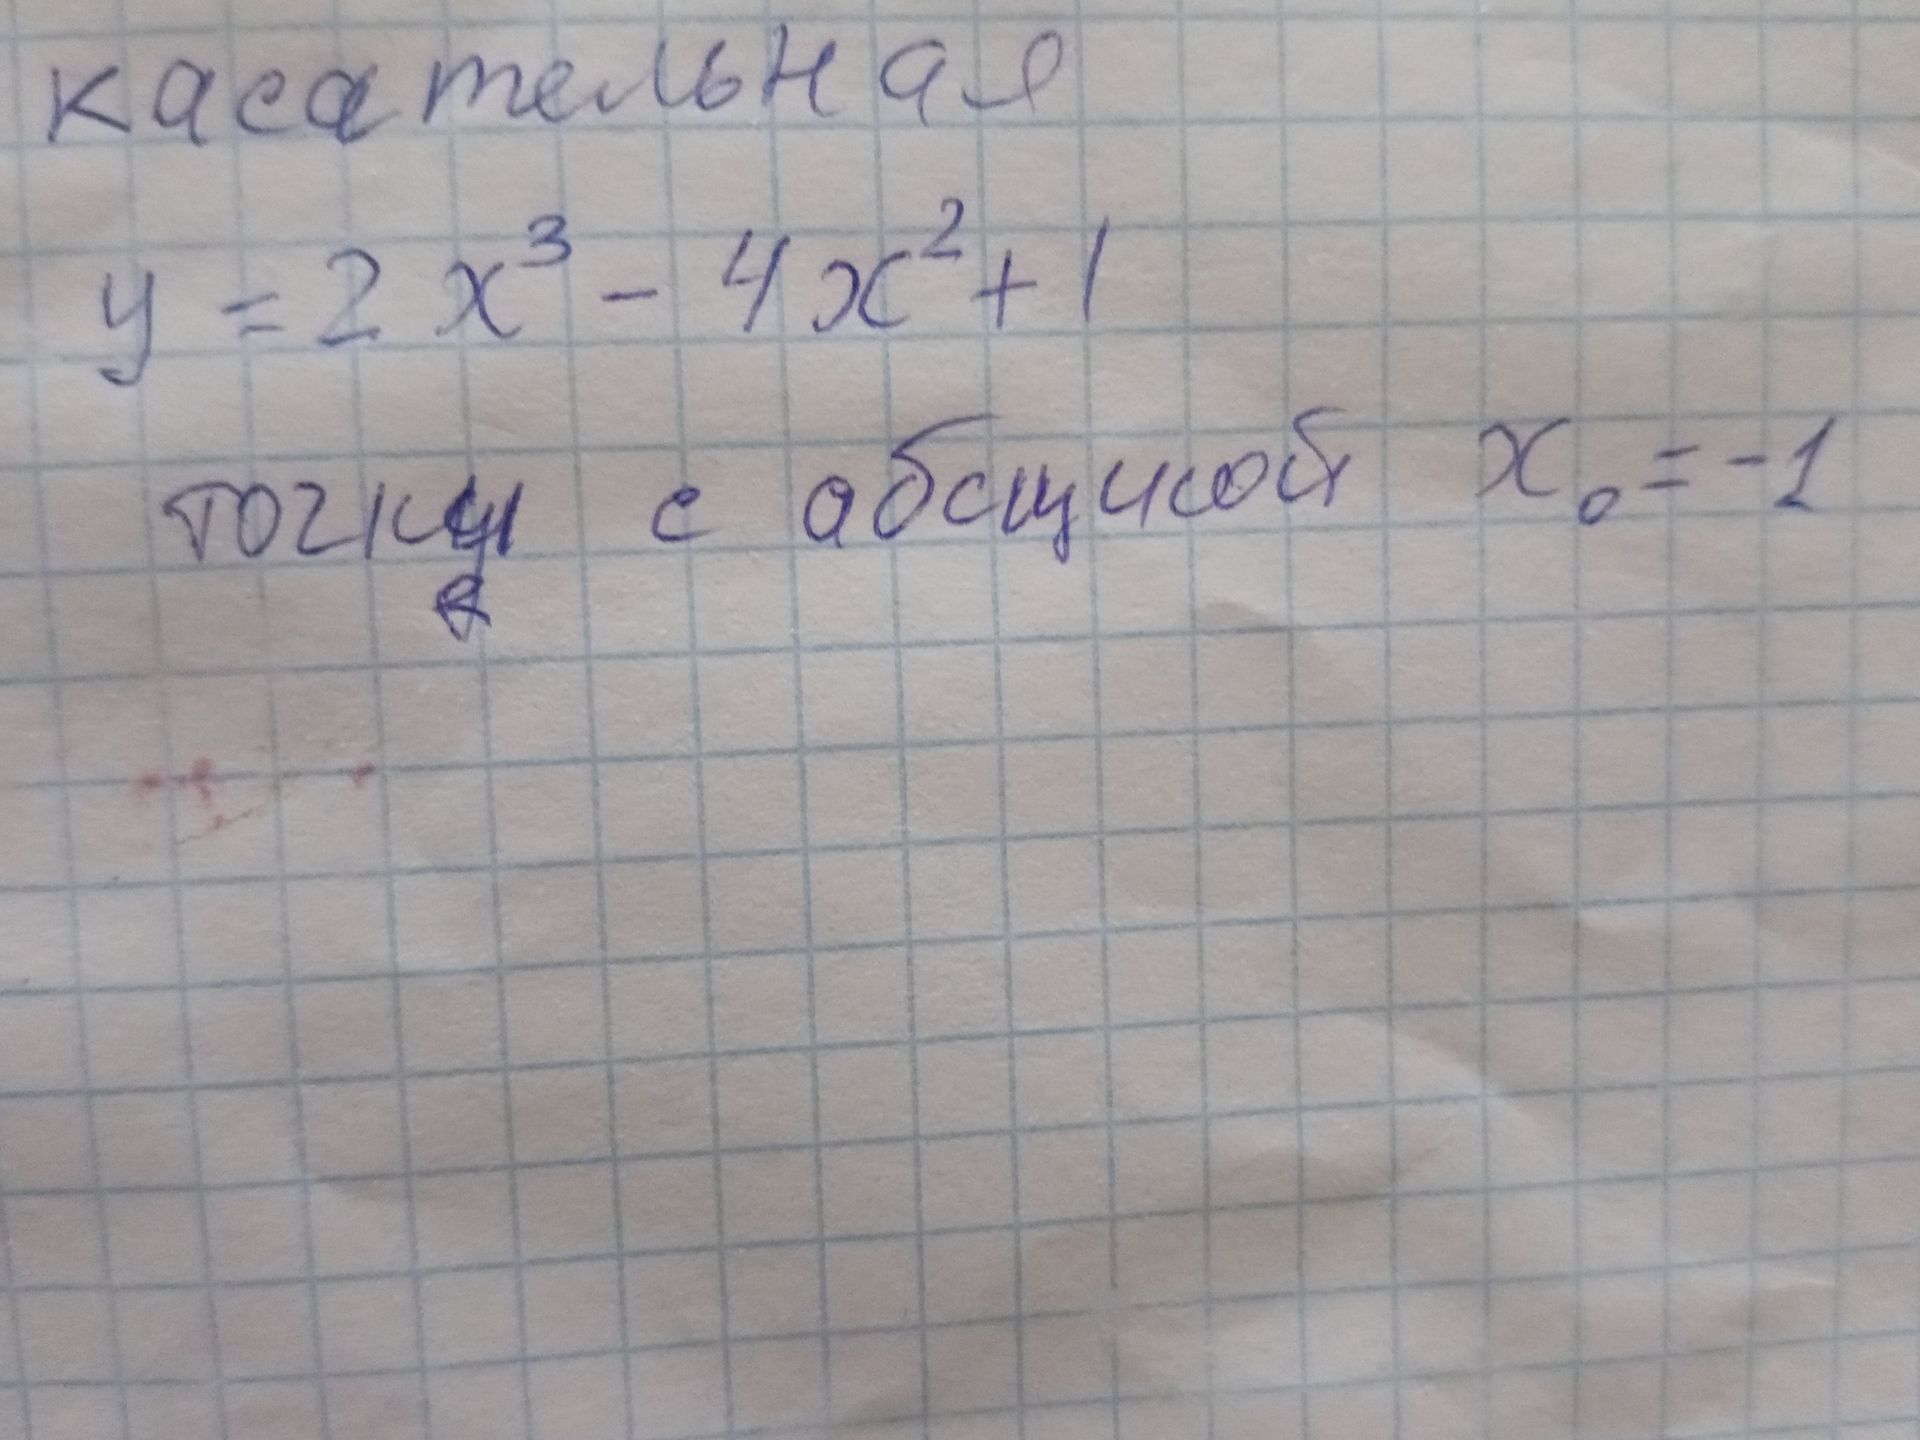 касательная
y = 2x³ - 4x² + 1
точки с абсциссой x₀ = -1